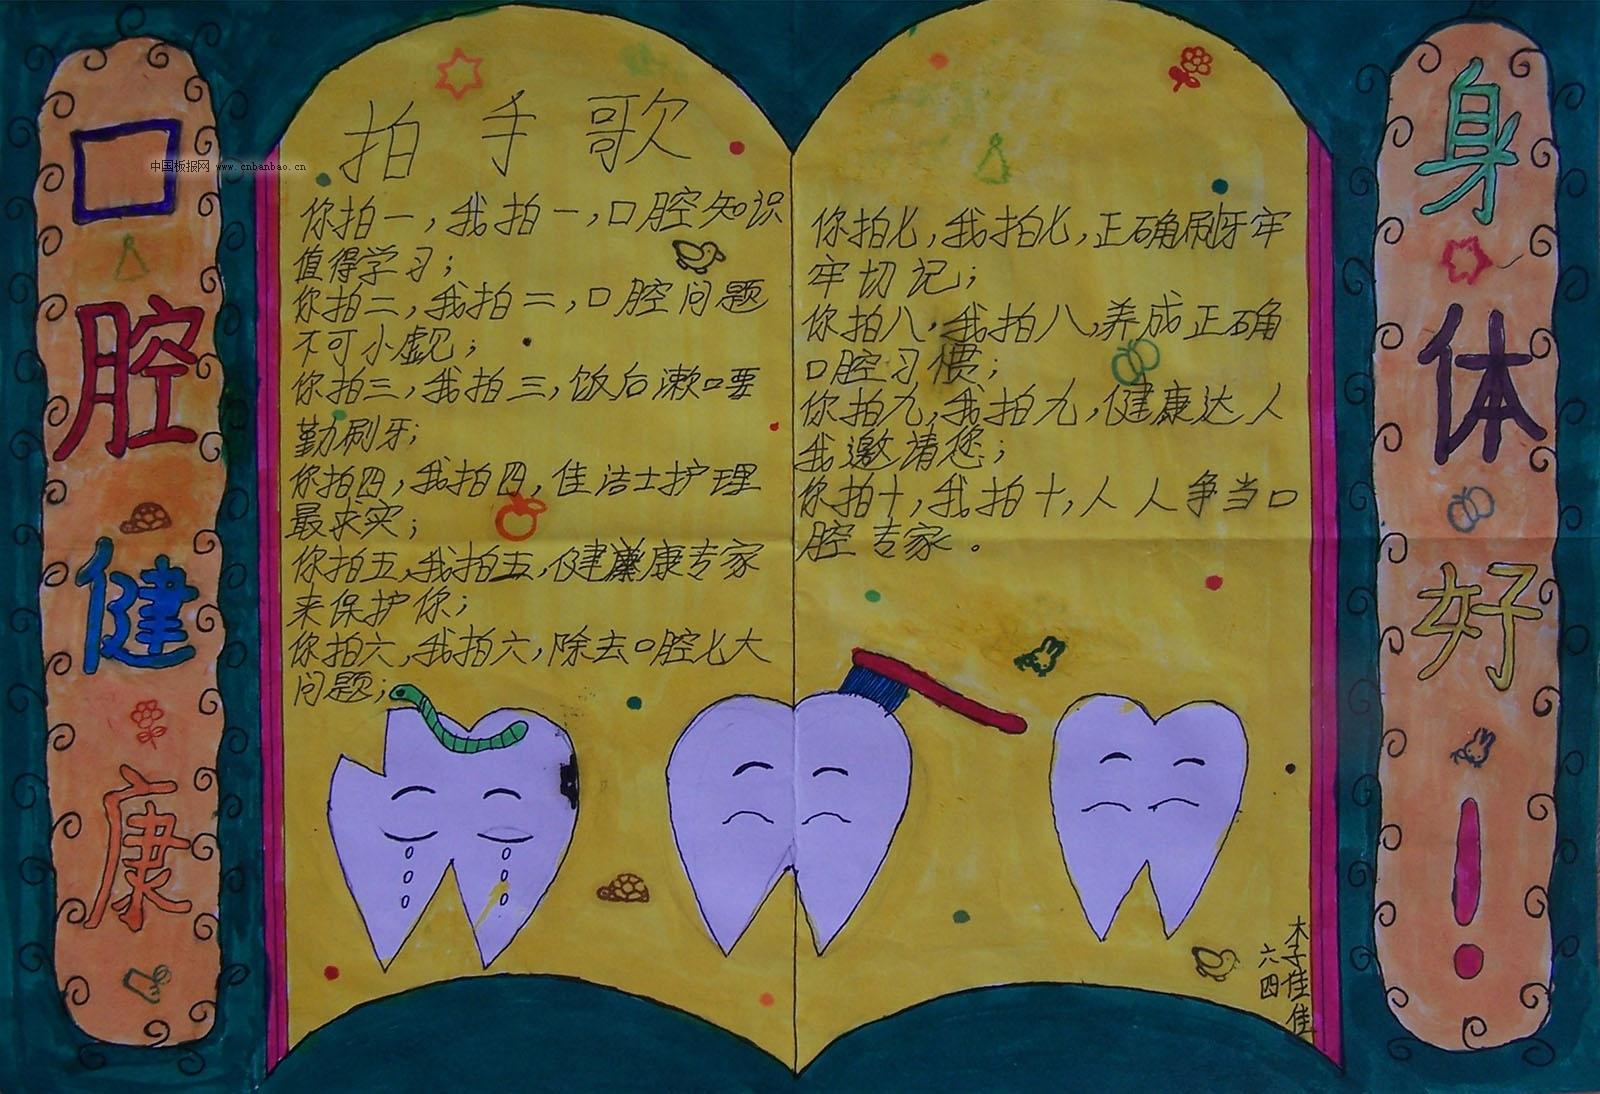 口腔健康
中国板报网 www.cnbanbao.cn
拍手歌
你拍一,我拍一,口腔知识
值得学习;
你拍二,我拍二,口腔问题
不可小觑;
你拍三,我拍三,饭后漱口要
勤刷牙;
你拍四,我拍四,佳洁士护理
最求实;
你拍五,我拍五,健康专家
来保护你;
你拍六,我拍六,除去口腔七大
问题;
你拍七,我拍七,正确刷牙牢
牢切记;
你拍八,我拍八,养成正确
口腔习惯;
你拍九,我拍九,健康达人
我邀请您;
你拍十,我拍十,人人争当口
腔专家。
六四
木子佳佳
身体好!